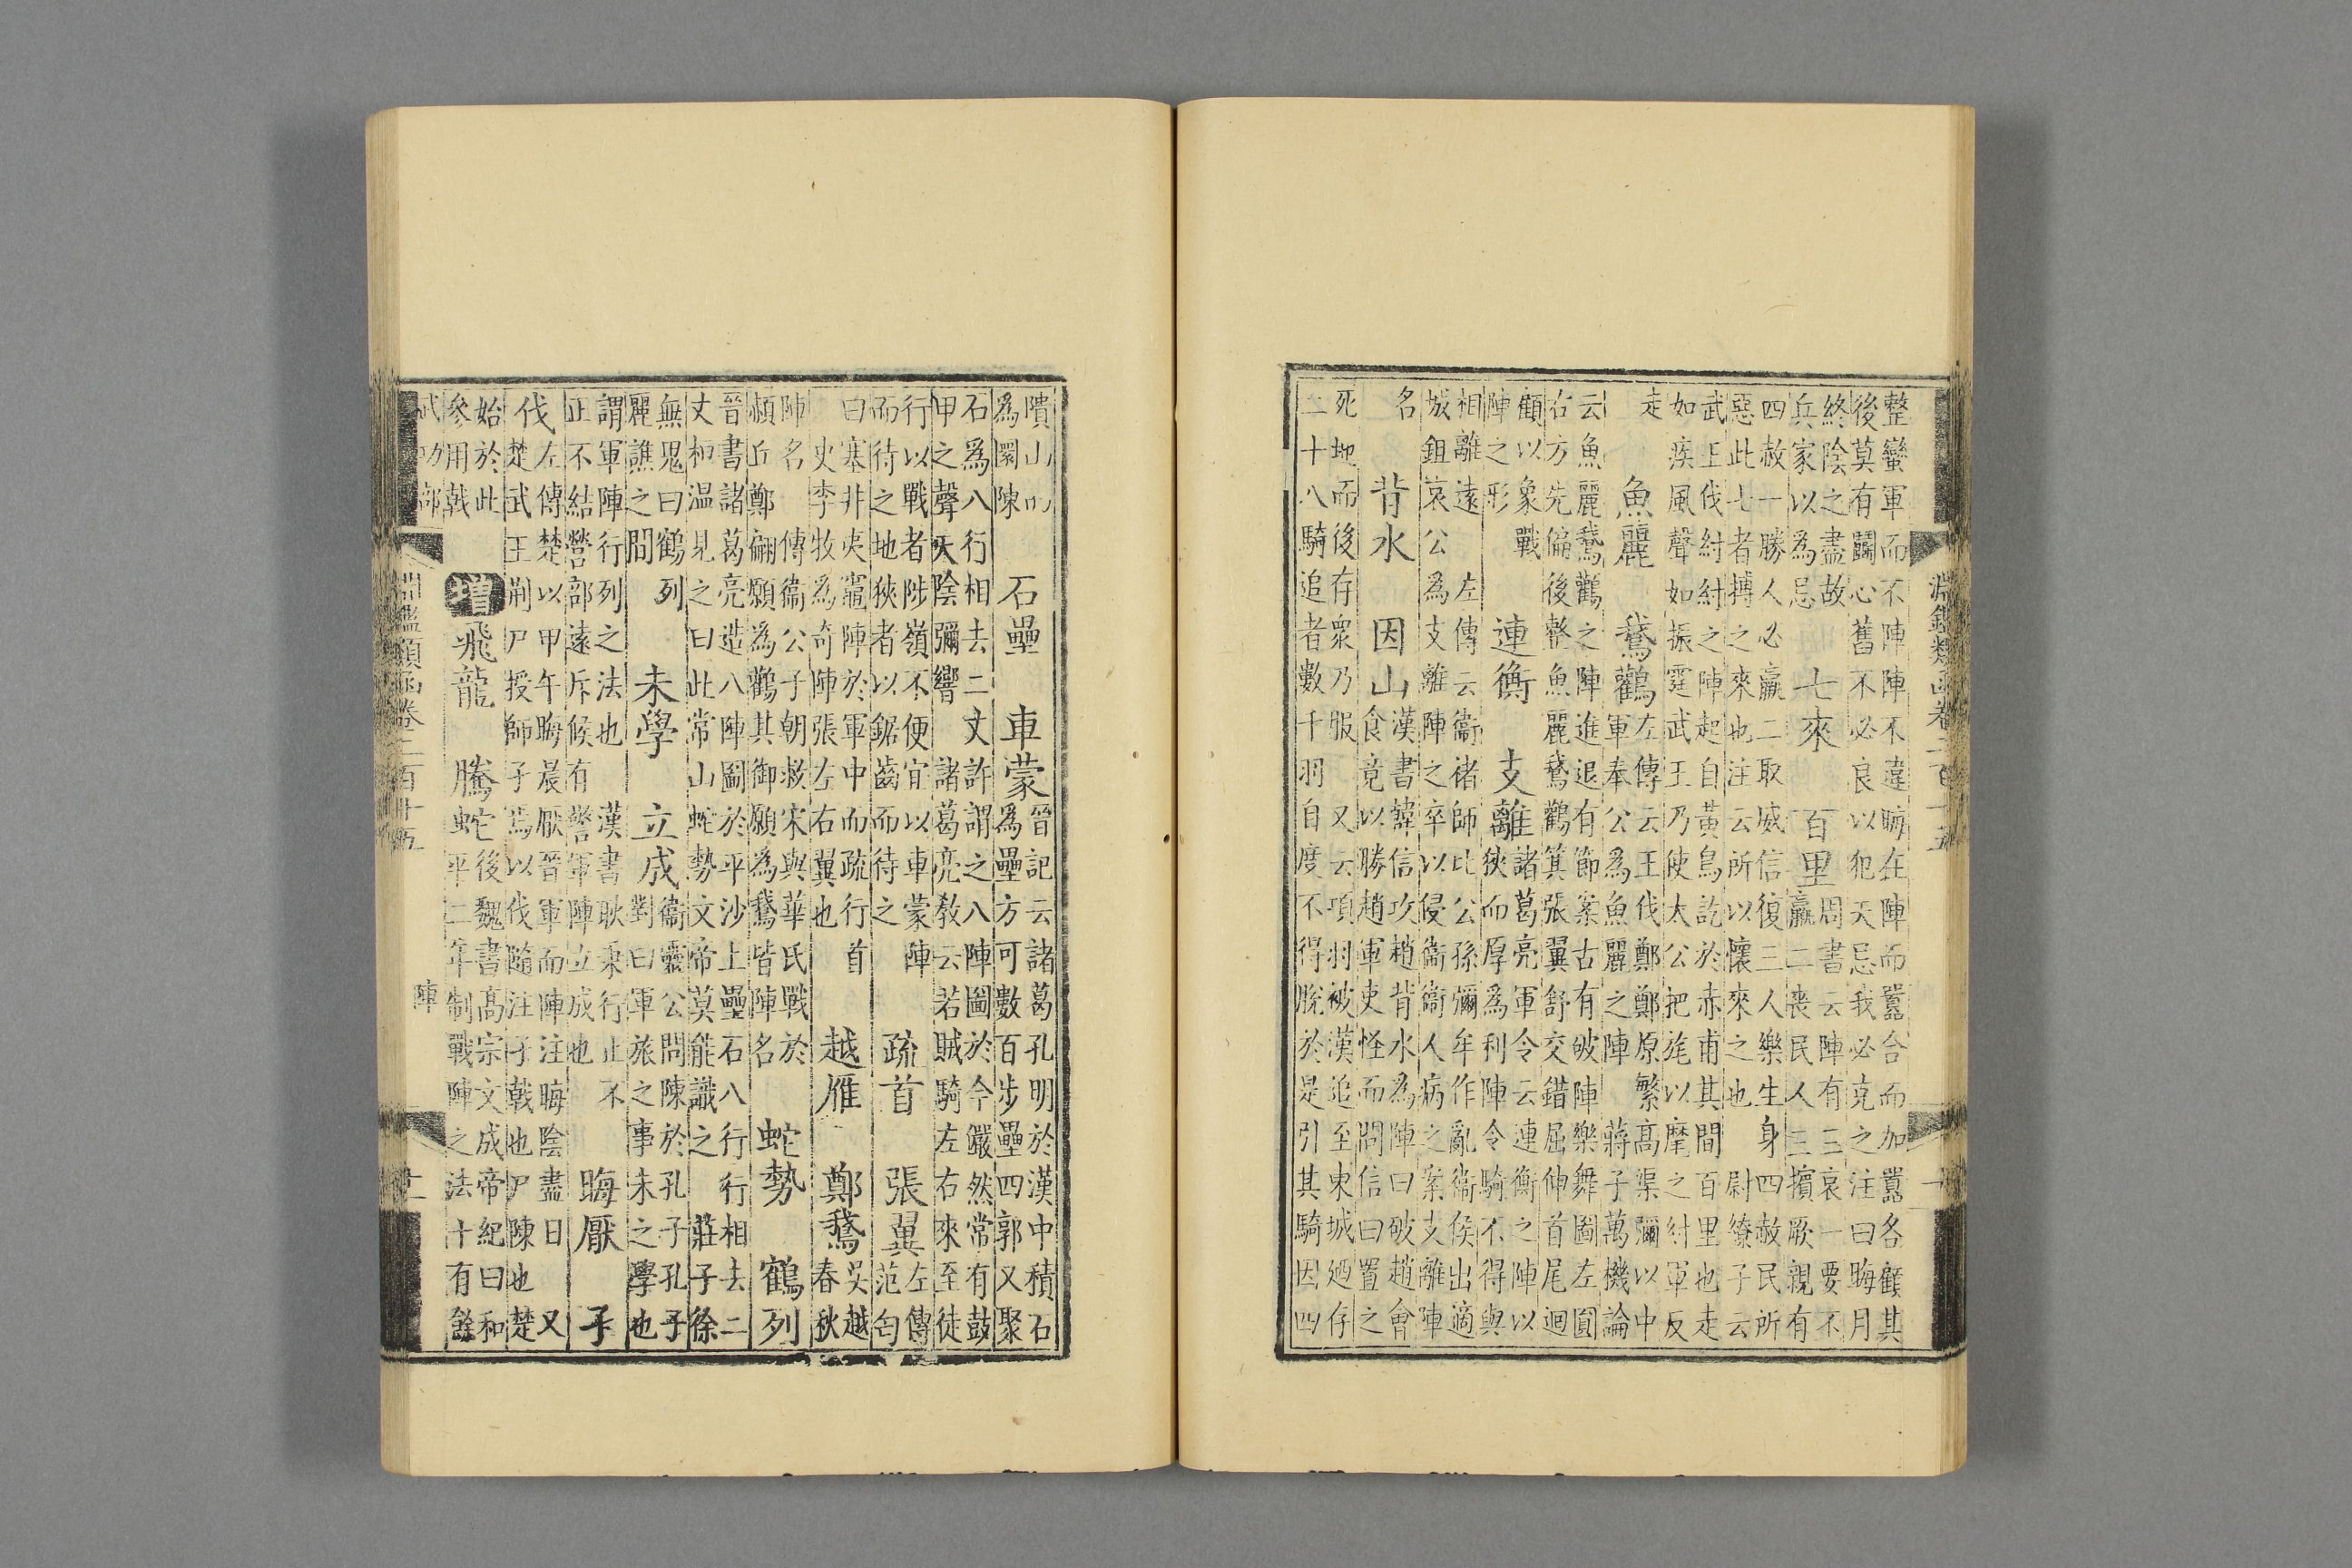 整蠻軍而不陣陣不違晦在陣而嚻合而加嚻各顧其
後莫有鬭心舊不必良以犯天忌我必克之注曰晦月
終陰之盡故
兵家以為忌
七來
百里
周書云陣有三哀一要不
贏二喪民人三擯厥親有
四赦一勝人必贏二取威信復三人樂生身四赦民所
惡此七者摶之來也注云所以懷來之也
尉繚子云
武王伐紂紂之陣起自黃鳥訖於赤甫其間百里也走
如疾風聲如振霆武王乃使太公把旄以麾之紂軍反
走
魚麗
鵞鸛
左傳云王伐鄭鄭原繁高渠彌以中
軍奉公為魚麗之陣
蔣子萬機論
云魚麗鵞鸛之陣進退有節案古有破陣樂舞圖左圓
右方先偏後整魚麗鵞鸛箕張翼舒交錯屈伸首尾迴
顧以象戰
陣之形
連衡
支離
諸葛亮軍令云連衡之陣以
狹而厚為利陣令騎不得與
相離遠
左傳云衛褚師比公孫彌牟作亂衛侯出適
城鉏哀公
為支離陣之卒以侵衛衛人病之案支離陣
名
背水
因山
漢書韓信攻趙背水為陣曰破趙會
食竟以勝趙軍吏怪而問信曰置之
死地而後存衆乃服
又云項羽被漢追至東城廼存
二十八騎追者數千羽自度不得脫於是引其騎因四
淵鑑類函卷二百十五
隤山而
為圜陳
石壘
車蒙
晉記云諸葛孔明於漢中積石
為壘方可數百步壘四郭又聚
石為八行相去二丈許謂之八陣圖於今儼然常有鼓
甲之聲天陰彌響
諸葛亮教云若賊騎左右來至徒
行以戰者陟嶺不便宜以車蒙陣
而待之地狹者以鋸齒而待之
疏首
張翼
左傳
范匄
曰塞井夷竈陣於軍中而疏行首
史李牧為奇陣張左右翼也
越雁
鄭鵞
吳越
春秋
陣名
傳衞公子朝救宋與華氏戰於
頳丘鄭翩願為鸛其御願為鵞皆陣名
蛇勢
鶴列
晉書諸葛亮造八陣圖於平沙上壘石八行行相去二
丈桓温見之曰此常山蛇勢文帝莫能識之
莊子徐
無鬼曰鶴列
麗譙之間
未學
立成
衞靈公問陳於孔子孔子
對曰軍旅之事未之學也
謂軍陣行列之法也
漢書耿秉行止不
正不結營部遠斥候有警軍陣立成也
晦厭
孑
伐
左傳楚以甲午晦晨厭晉軍而陣注晦陰盡日
又
楚武王荆尸授師孑焉以伐隨注孑戟也尸陳也楚
始於此
參用戟
增
飛龍
騰蛇
後魏書高宗文成帝紀曰和
平二年制戰陣之法十有餘
武功部
淵鑑類函卷二百十五
陣